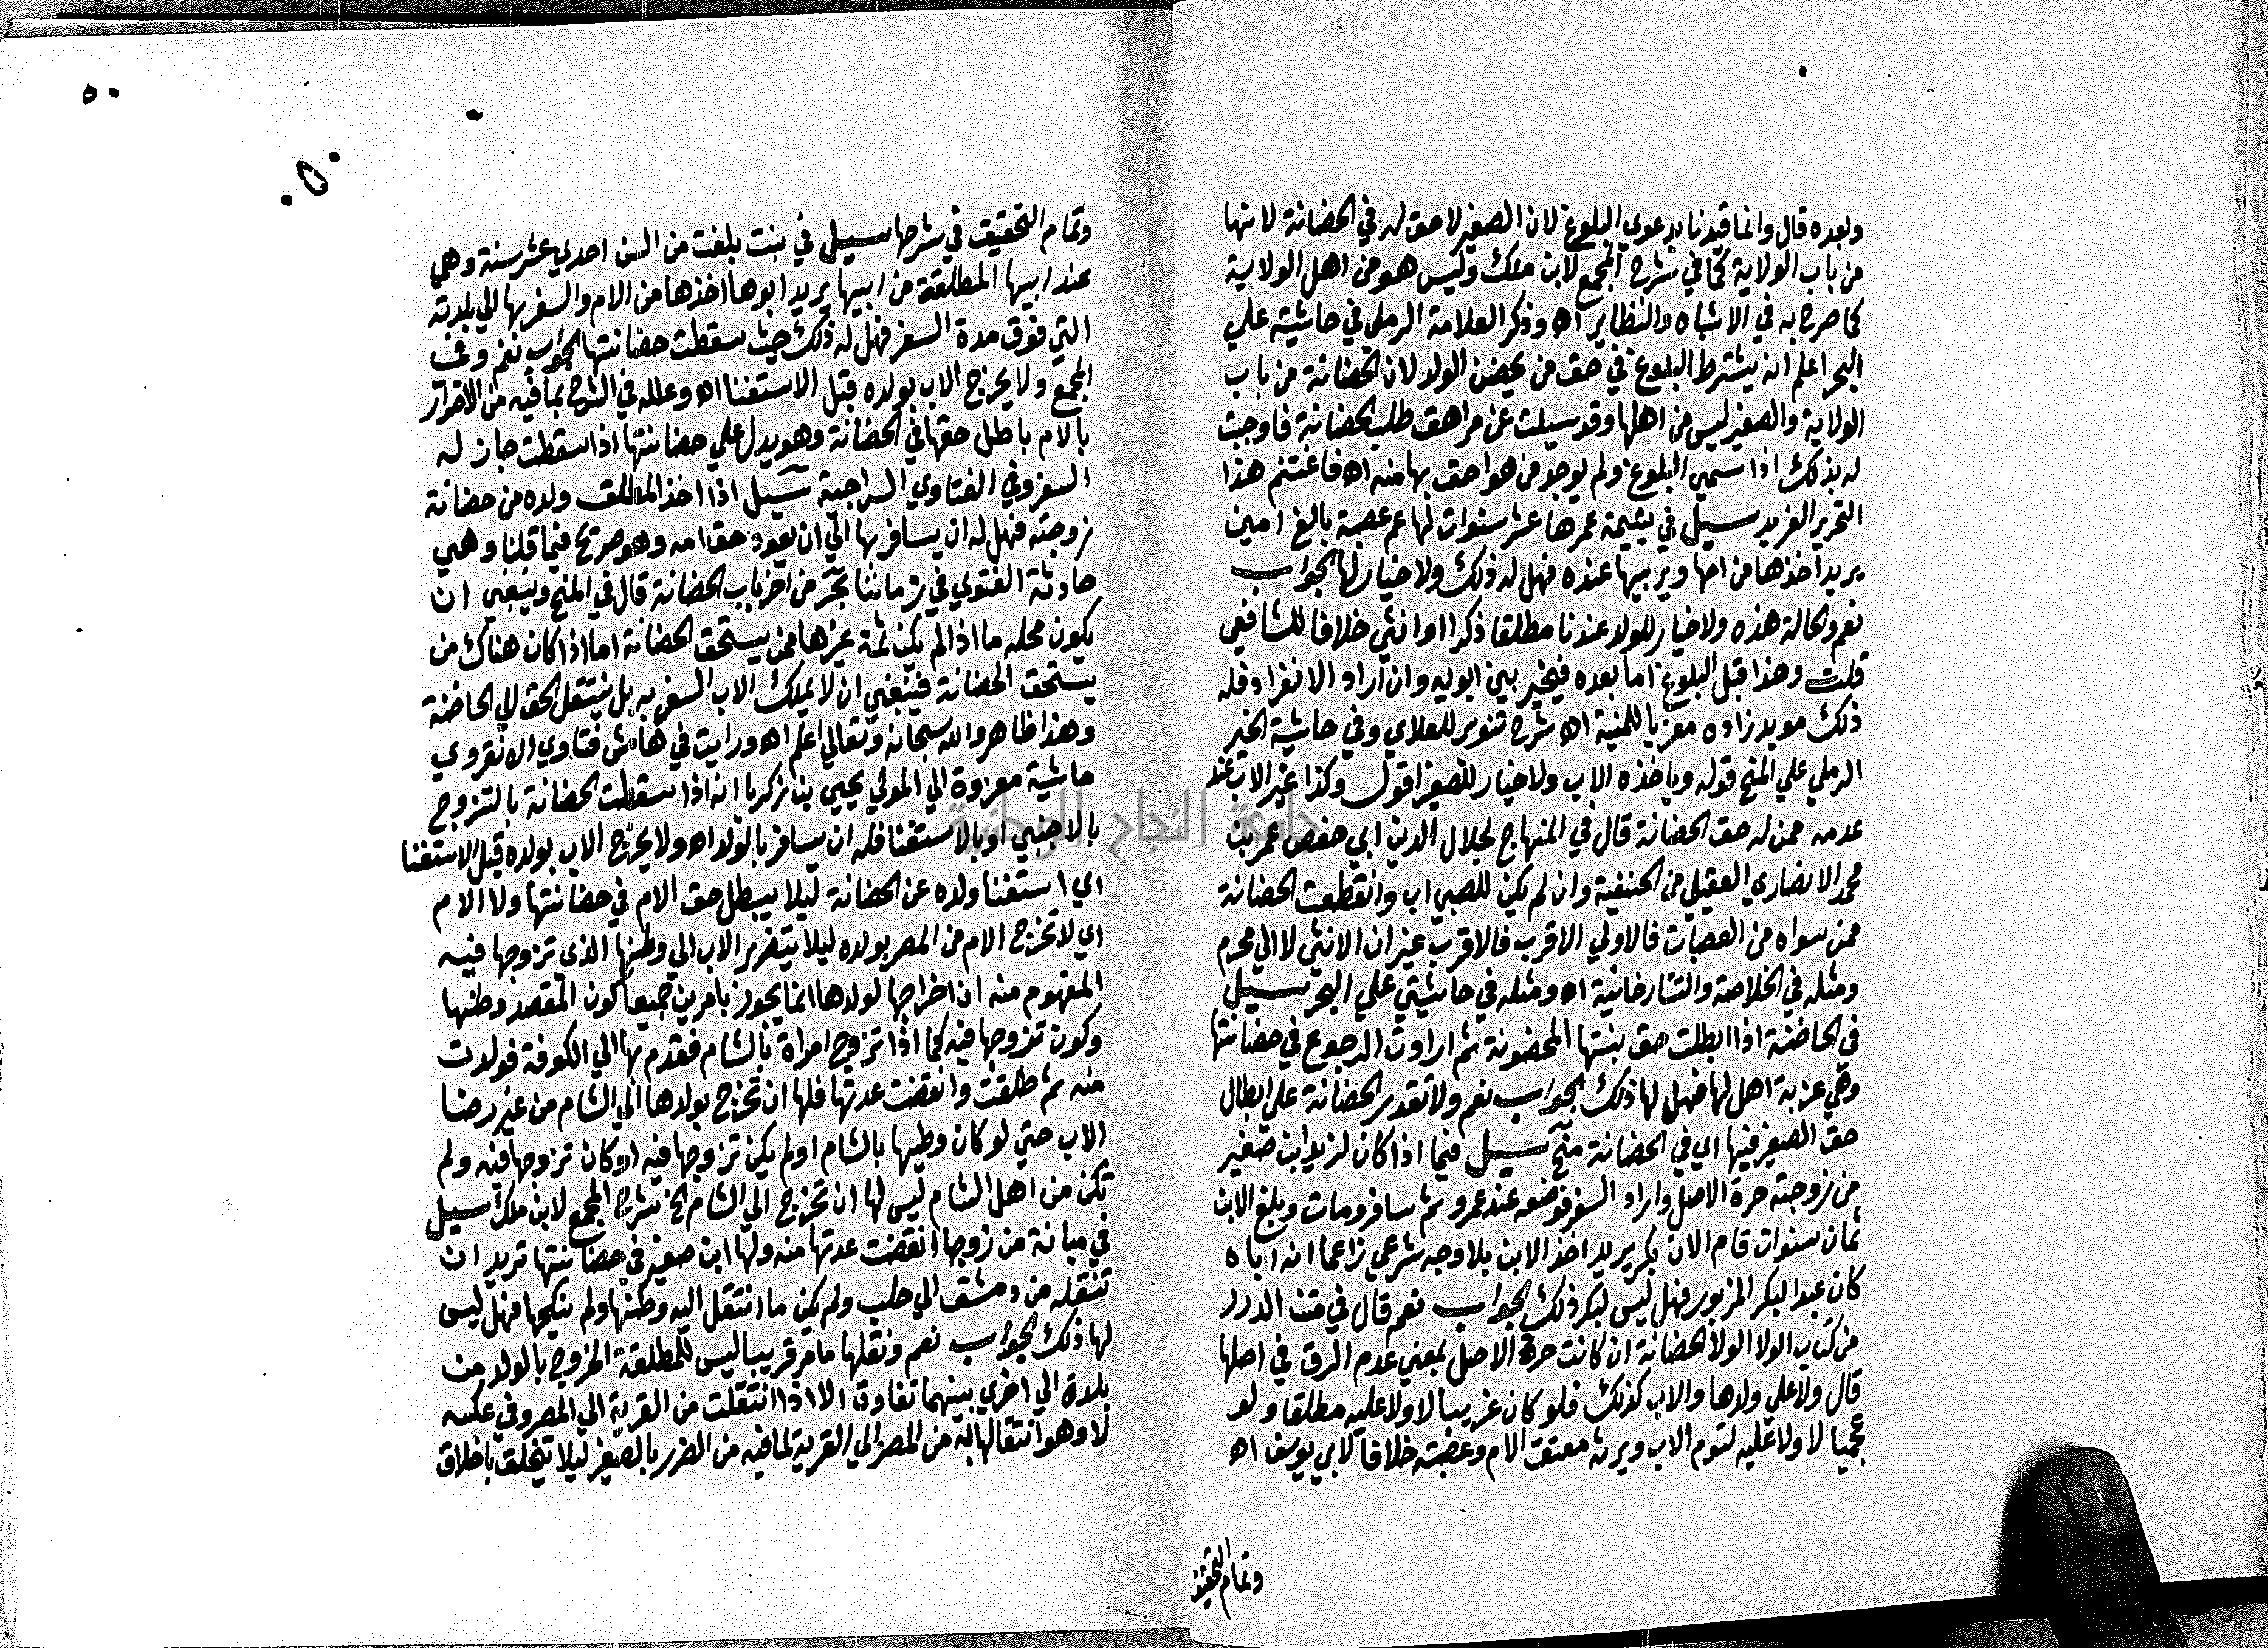 وبعده قال وانما قيدنا بدعوي البلوغ لان الصغير لا حق له في الحضانة لانها
من باب الولاية كما في شرح المجمع لابن ملك وليس هو من اهل الولاية
كما صرح به في الاشباه والنظاير اه وذكر العلامة الرملي في حاشيته علي
البحر اعلم انه يشترط البلوغ في حق من يحضن الولد لان الحضانة من باب
الولاية والصغير ليس من اهلها وقد سيلت عن مراهق طلب الحضانة فاجبت
له بذلك اذا سمي البلوغ ولم يوجد من هو احق بها منه اه فاغتنم هذا
التحرير الفريد سيل في يتيمة عمرها عشر سنوات لها عم عصبة بالغ امين
يريد اخذها من امها ويربيها عنده فهل له ذلك ولا خيار لها الجواب
نعم والحالة هذه ولا خيار للولد عندنا مطلقا ذكرا او انثي خلافا للشافعي
قلت وهذا قبل البلوغ اما بعده فيخير بين ابويه وان اراد الانفراد فله
ذلك مويد زاده معزيا للمنية اه شرح تنوير للعلاي وفي حاشية الخير
الرملي علي المنح قوله وياخذه الاب ولا خيار للصغير اقول وكذا غير الاب عند
عدمه ممن له حق الحضانة قال في المنهاج لجلال الدين ابي حفص عمر بن
محمد الانصاري العقيلي من الحنفية وان لم يكن للصبي اب وانقطعت الحضانة
ممن سواه من العصبات فالاولي الاقرب فالاقرب غير ان الانثي لا الي محرم
ومثله في الخلاصة والتتارخانية اه ومثله في حاشيتي علي البحر سيل
في الحاضنة اذا ابطلت حق بنتها المحضونة ثم ارادت الرجوع في حضانتها
وهي عزبة اهل لها فهل لها ذلك الجواب نعم ولا تقدر الحاضنة علي ابطال
حق الصغير فيها اي في الحضانة منح سيل فيما اذا كان لزيد ابن صغير
من زوجته حرة الاصل واراد السفر فوضعه عند عمرو ثم سافر ومات وبلغ الابن
ثمان سنوات قام الان بكر يريد اخذ الابن بلا وجه شرعي زاعما ان اباه
كان عبد البكر المزبور فهل ليس لبكر ذلك الجواب نعم قال في متن الدرر
من كتاب الولا الولا الحضانة ان كانت حرة الاصل بمعني عدم الرق في اصلها
قال ولا علي ولدها والاب كذلك فلو كان عربيا لا ولا عليه مطلقا ولو
عجميا لا ولا عليه لقوم الاب ويرثه معتق الام وعصبته خلافا لابي يوسف اه
وتمام التحقيق
٥٠
٥٠
وتمام التحقيق في شرحها سيل في بنت بلغت من السن احدي عشر سنة وهي
عند ابيها المطلقة من ابيها يريد ابوها اخذها من الام والسفر بها الي بلدته
التي فوق مدة السفر فهل له ذلك حيث سقطت حضانتها الجواب نعم وفي
المجمع ولا يخرج الاب بولده قبل الاستغنا اه وعلله في الشرح بما فيه من الاضرار
بالام باطل حقها في الحضانة وهو يدل علي حضانتها اذا سقطت جاز له
السفر وفي الفتاوي السراجية سيل اذا اخذ المطلق ولده من حضانة
زوجته فهل له ان يسافر بها الي ان يعود حق امه وهو صريح فيما قلنا وهي
حادثة الفتوي في زماننا بحر من اخر باب الحضانة قال في المنح وينبغي ان
يكون محله ما اذا لم يكن ثمة غيرها ممن يستحق الحضانة اما اذا كان هناك من
يستحق الحضانة فينبغي ان لا يملك الاب السفر به بل ينتقل الحق الي الحاضنة
وهذا ظاهر والله سبحانه وتعالي اعلم اه ورايت في هامش فتاوي الانقروي
حاشية معزوة الي المولي يحيي بن زكريا انه اذا سقطت الحضانة بالتزوج
بالاجنبي او بالاستغنا فله ان يسافر بالولد اه ولا يخرج الاب بولده قبل الاستغنا
اي استغنا ولده عن الحضانة ليلا يبطل حق الام في حضانتها ولا الام
اي لا تخرج الام من المصر بولده ليلا يتضرر الاب الي وطنها الذي تزوجها فيه
المفهوم منه ان اخراجها لولدها انما يجوز بامرين جميعا كون المقصد وطنها
وكون تزوجها فيه كما اذا تزوج امراة بالشام فقدم بها الي الكوفة فولدت
منه ثم طلقت وانقضت عدتها فلها ان تخرج بولدها الي الشام من غير رضا
الاب حتي لو كان وطنها بالشام ولم يكن تزوجها فيه او كان تزوجها فيه ولم
تكن من اهل الشام ليس لها ان تخرج الي الشام الخ شرح المجمع لابن ملك سيل
في مبانة من زوجها انقضت عدتها منه ولها ابن صغير في حضانتها تريد ان
تنتقله من دمشق الي حلب ولم يكن ما انتقل اليه وطنها ولم ينكحها فهل ليس
لها ذلك الجواب نعم ونقلها ما مر قريبا ليس للمطلقة الخروج بالولد من
بلدة الي اخري بينهما تفاوت الا اذا انتقلت من القرية الي المصر وفي عكسه
لا وهو انتقالها به من المصر الي القرية لما فيه من الضرر بالصغير ليلا يتخلق باخلاق
جامعة النجاح الوطنية